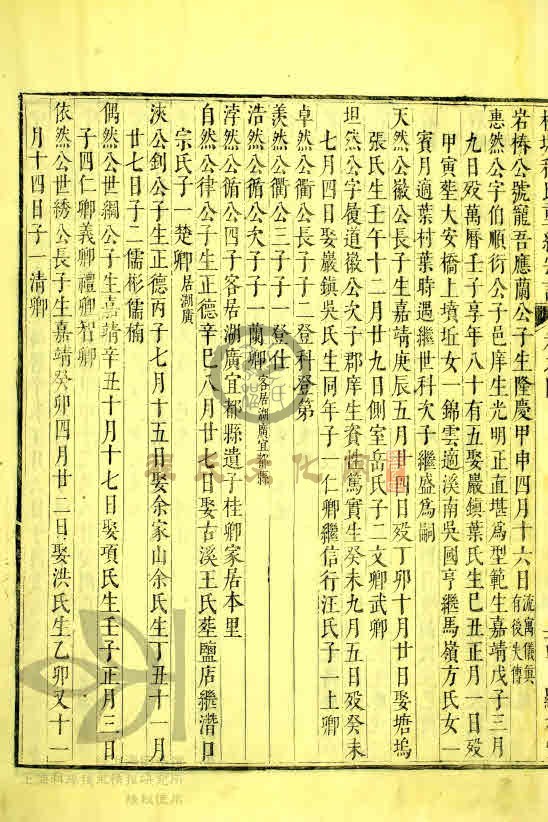 岩椿公號寵吾應蘭公子生隆慶甲申四月十六日流寓儀真有後失傳
惠然公字伯順衍公子邑庠生光明正直堪為型範生嘉靖戊子三月
九日歿萬曆壬子享年八十有五娶巖鎮葉氏生己丑正月一日歿
甲寅塟大安橋上墳坵女一錦雲適溪南吳國亨繼馬嶺方氏女一
賓月適葉村葉時遇繼世科次子繼盛爲嗣
天然公徽公長子生嘉靖庚辰五月廿四日歿丁卯十月廿日娶塘塢
張氏生壬午十二月廿九日側室岳氏子二文卿武卿
坦然公字履道徽公次子郡庠生資性篤實生癸未九月五日歿癸未
七月四日娶巖鎮吳氏生同年子一仁卿繼信行汪氏子一上卿
卓然公衢公長子子二登科登第
羡然公衢公三子子一登仕
浩然公循公次子子一蘭卿客居湖廣宜都縣
浡然公循公四子客居湖廣宜都縣遺子桂卿家居本里
自然公律公子生正德辛巳八月廿七日娶古溪王氏塟鹽店繼潛口
宗氏子一楚卿居湖廣
浹公釗公子生正德丙子七月十五日娶余家山余氏生丁丑十一月
廿七日子二儒彬儒楠
偶然公世綱公子生嘉靖辛丑十月十七日娶項氏生壬子正月三日
子四仁卿義卿禮卿智卿
依然公世綉公長子生嘉靖癸卯四月廿二日娶洪氏生乙卯又十一
月十四日子一清卿